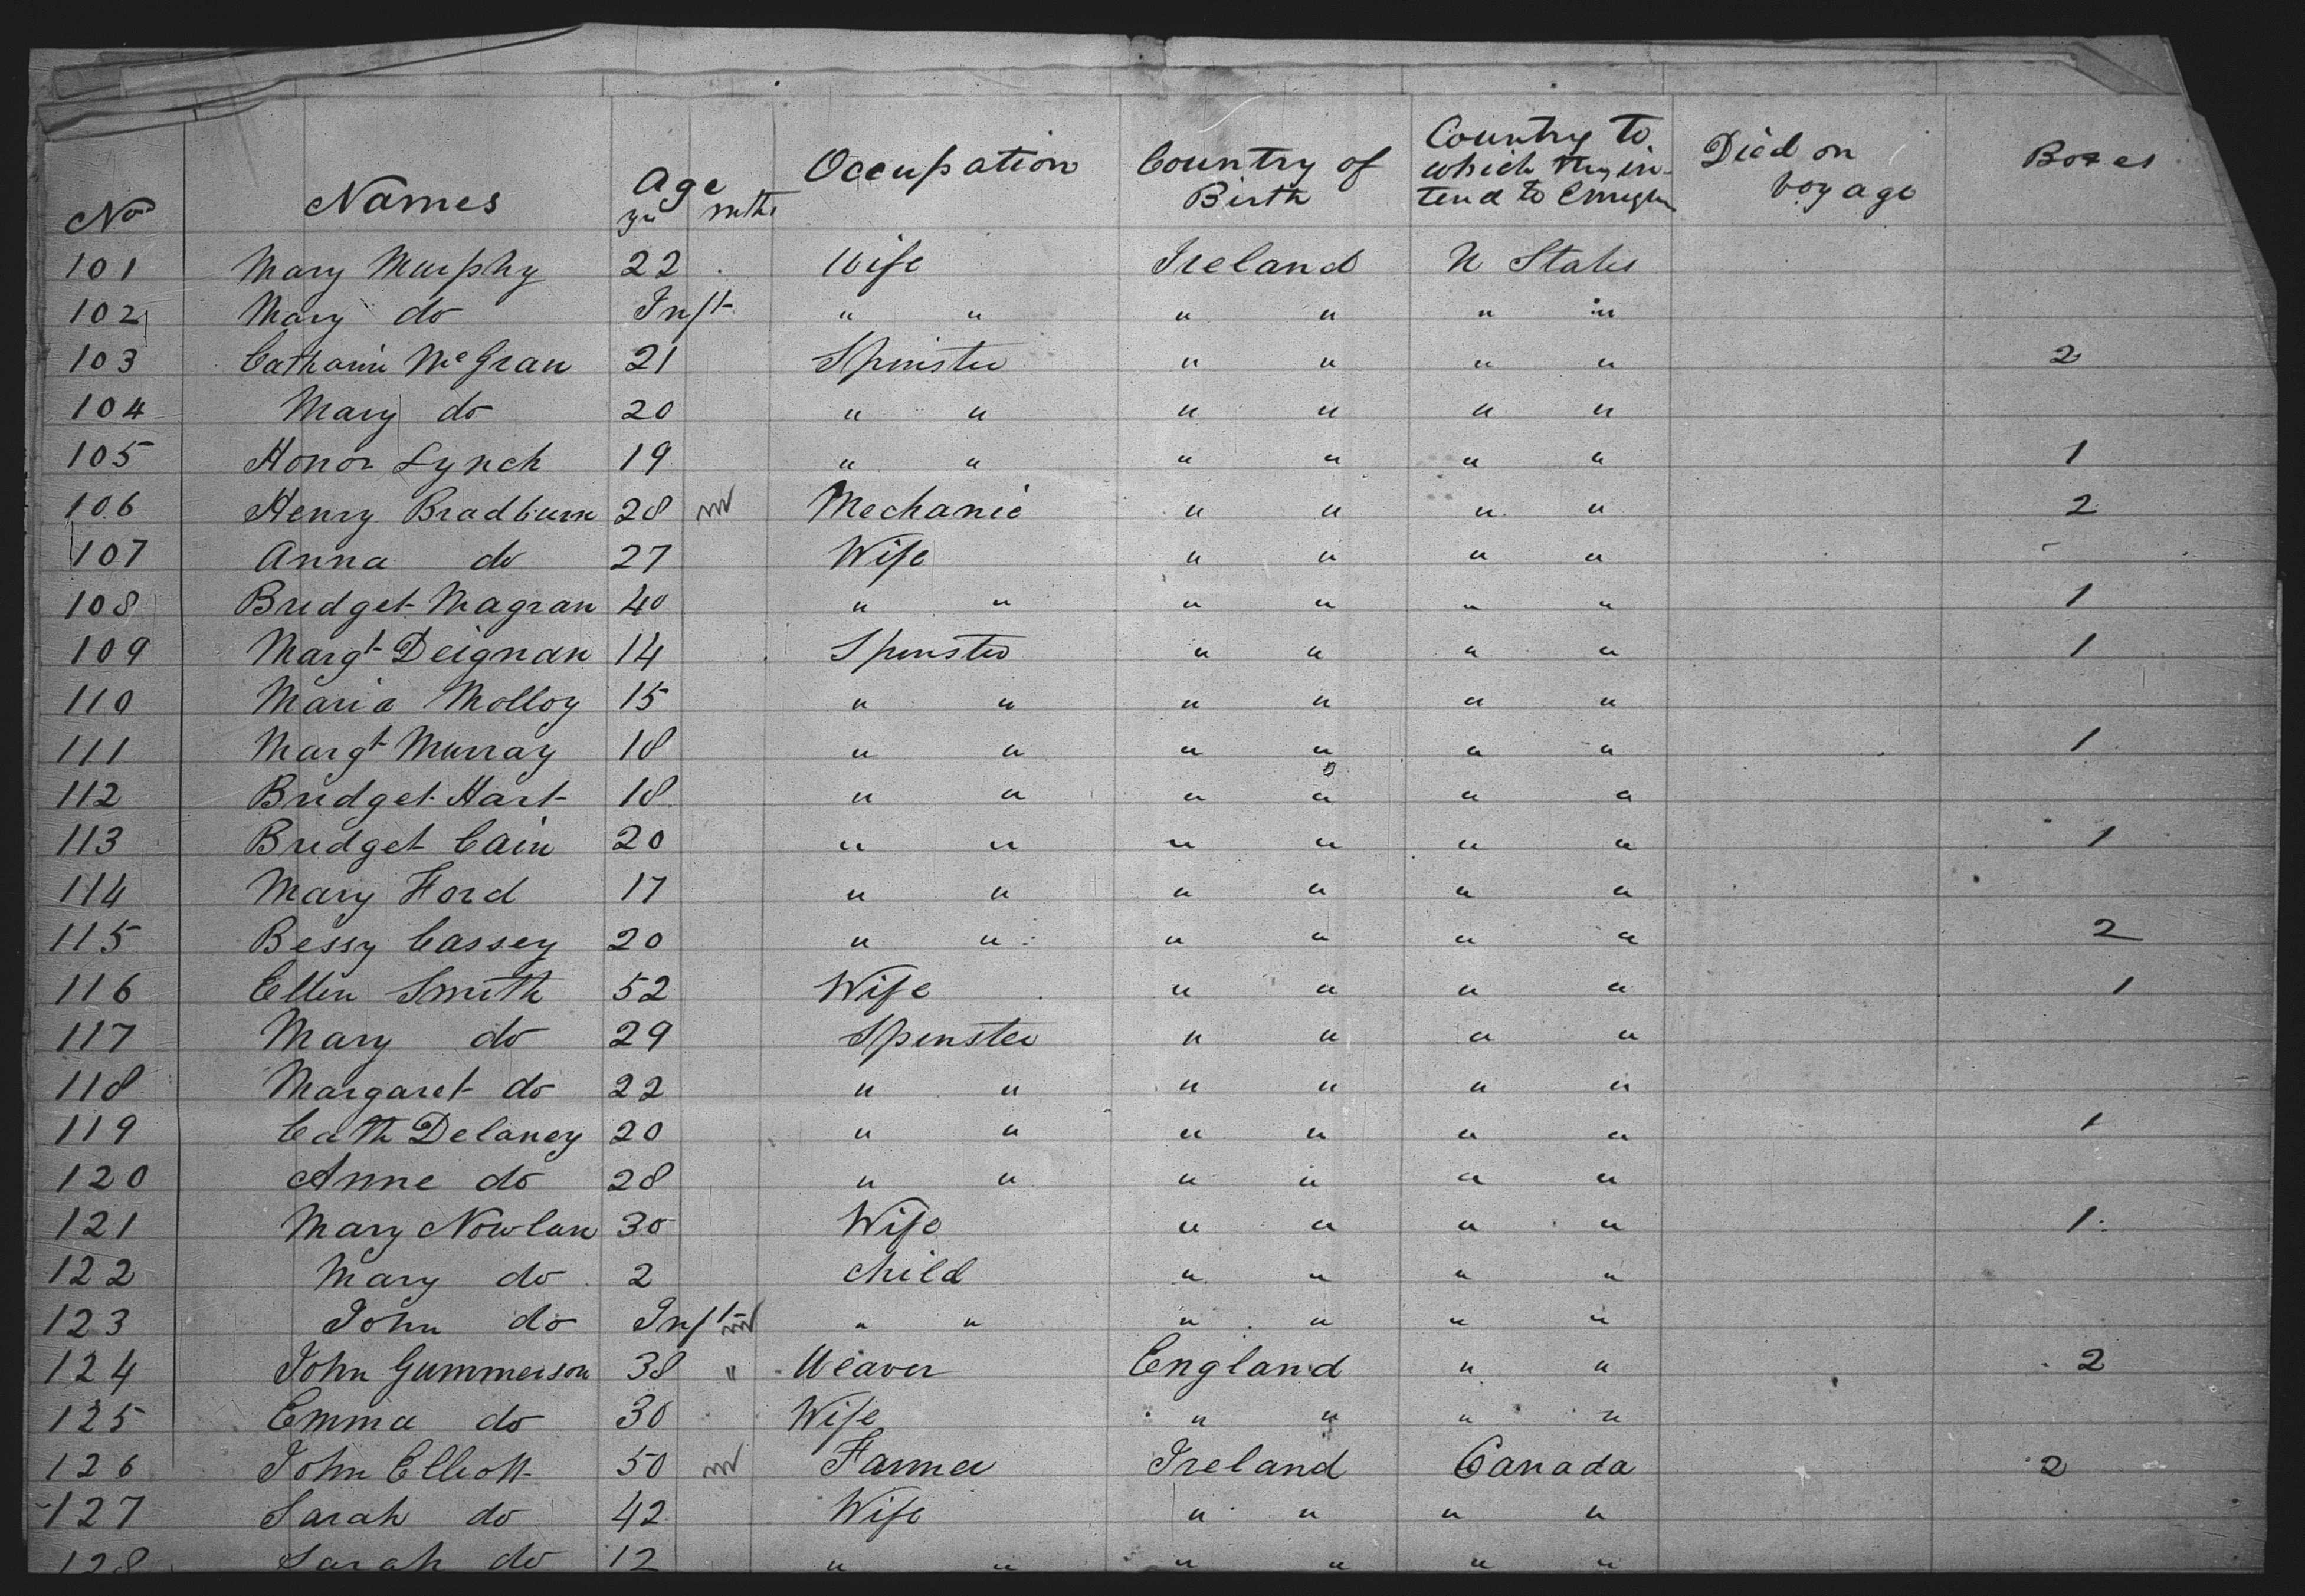 No Names Age yrs mths Occupation Country of Birth Country to which they intend to Emigrn Died on voyage Boxes
101 Mary Murphy 22 Wife Ireland U States
102 Mary do Inft " " " " " "
103 Catharin McGran 21 Spinster " " " " 2
104 Mary do 20 " " " " " "
105 Honor Lynch 19 " " " " " " 1
106 Henry Bradburn 28 Mechanic " " " " 2
107 Anna do 27 Wife " " " "
108 Bridget Magran 40 " " " " " " 1
109 Margt Deignan 14 Spinster " " " " 1
110 Maria Molloy 15 " " " " " "
111 Margt Murray 18 " " " " " " 1
112 Bridget Hart 18 " " " " " "
113 Bridget Cain 20 " " " " " " 1
114 Mary Ford 17 " " " " " "
115 Bessy Cassey 20 " " " " " " 2
116 Ellen Smith 52 Wife " " " " 1
117 Mary do 29 Spinster " " " "
118 Margaret do 22 " " " " " "
119 Cath Delaney 20 " " " " " " 1
120 Anne do 28 " " " " " "
121 Mary Nowlan 30 Wife " " " " 1
122 Mary do 2 child " " " "
123 John do Inft " " " " " "
124 John Gummerson 38 " Weaver England " " 2
125 Emma do 30 Wife " " " "
126 John Elliott 50 Farmer Ireland Canada 2
127 Sarah do 42 Wife " " " "
128 Sarah do 12 " " " " " "